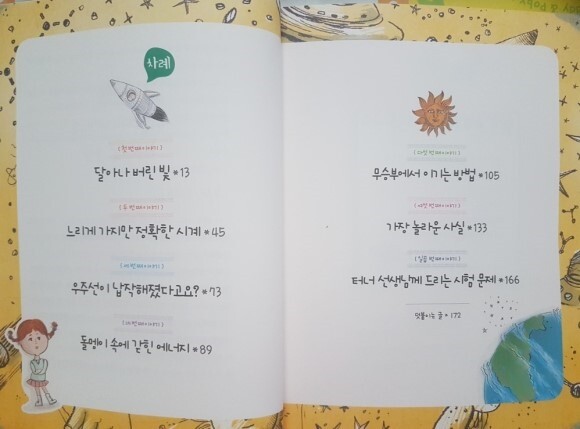 차례
(첫 번째 이야기)
달아나 버린 빛 *13
(두 번째 이야기)
느리게 가지만 정확한 시계 *45
(세 번째 이야기)
우주선이 납작해졌다고요? *73
(네 번째 이야기)
돌멩이 속에 갇힌 에너지 *89
(다섯 번째 이야기)
무승부에서 이기는 방법 *105
(여섯 번째 이야기)
가장 놀라운 사실 *133
(일곱 번째 이야기)
터너 선생님께 드리는 시험 문제 *166
덧붙이는 글 * 172